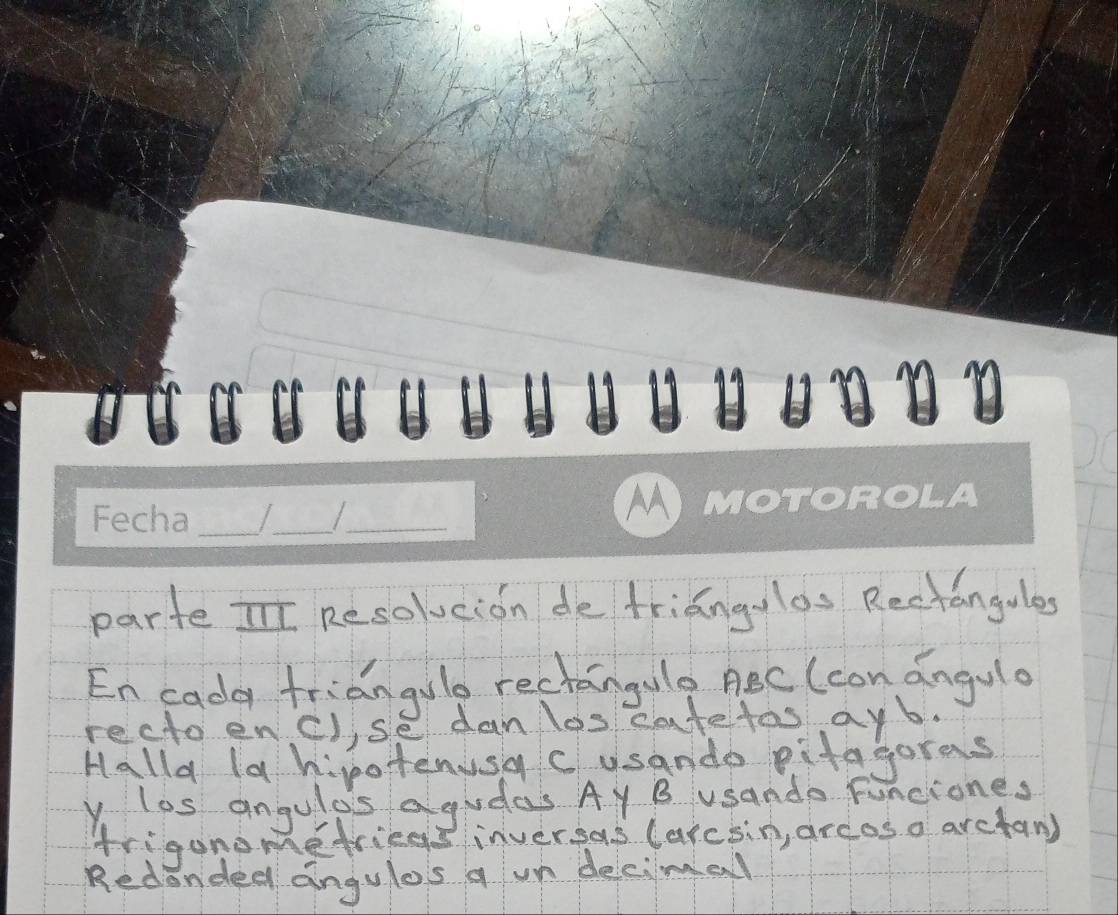 Fecha ___/___/_____
MOTOROLA
parte III Resolución de triángulos Rectángulos
En cada triángulo rectángulo ABC (con ángulo
recto en C), se dan los catetos a y b.
Halla la hipotenusa c usando pitagoras
y los angulos agudos A y B usando Funciones
trigonométricas inversas (arcsin, arcos o arctan)
Redondea ángulos a un decimal